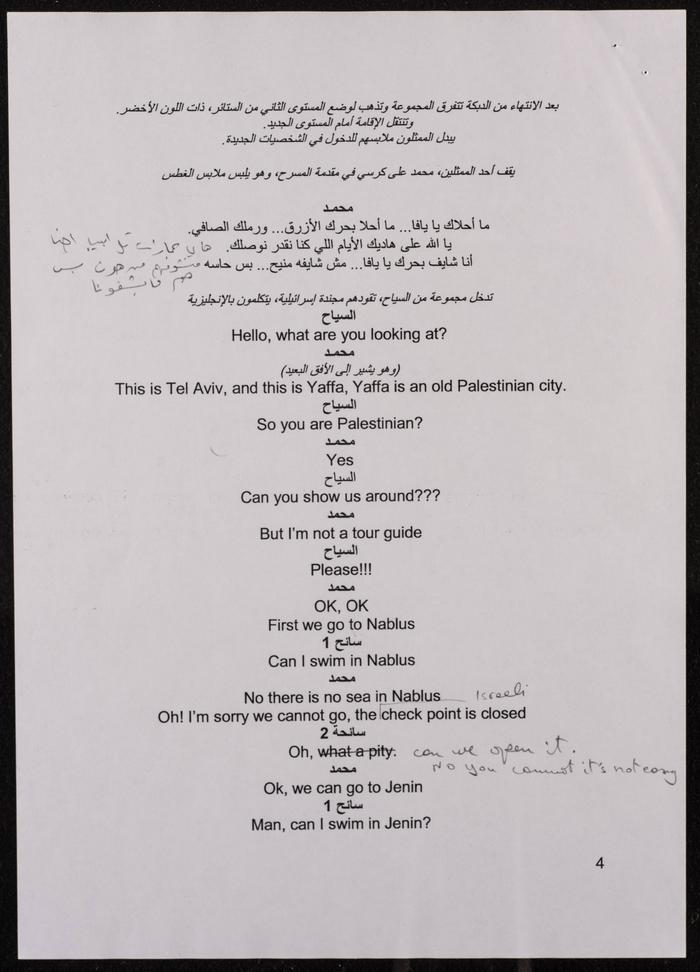 بعد الانتهاء من الدبكة تتفرق المجموعة وتذهب لوضع المستوى الثاني من الستائر، ذات اللون الأخضر.
وتنتقل الإقامة أمام المستوى الجديد.
يبدل الممثلون ملابسهم للدخول في الشخصيات الجديدة.
يقف أحد الممثلين، محمد على كرسي في مقدمة المسرح، وهو يلبس ملابس الغطس
محمد
ما أحلاك يا يافا... ما أحلا بحرك الأزرق... ورملك الصافي.
يا الله على هاديك الأيام اللي كنا نقدر نوصلك.
هاي عمارات تل ابيب احنا
أنا شايف بحرك يا يافا... مش شايفه منيح... بس حاسه
منشوفهم من هون بس
هم ما بشفونا
تدخل مجموعة من السياح، تقودهم مجندة إسرائيلية، يتكلمون بالإنجليزية
السياح
Hello, what are you looking at?
محمد
(وهو يشير إلى الأفق البعيد)
This is Tel Aviv, and this is Yaffa, Yaffa is an old Palestinian city.
السياح
So you are Palestinian?
محمد
Yes
السياح
Can you show us around???
محمد
But I'm not a tour guide
السياح
Please!!!
محمد
OK, OK
First we go to Nablus
سائح 1
Can I swim in Nablus
محمد
No there is no sea in Nablus
Israeli
Oh! I'm sorry we cannot go, the check point is closed
سائحة 2
Oh, what a pity. can we open it.
No you cannot it's not easy
محمد
Ok, we can go to Jenin
سائح 1
Man, can I swim in Jenin?
4